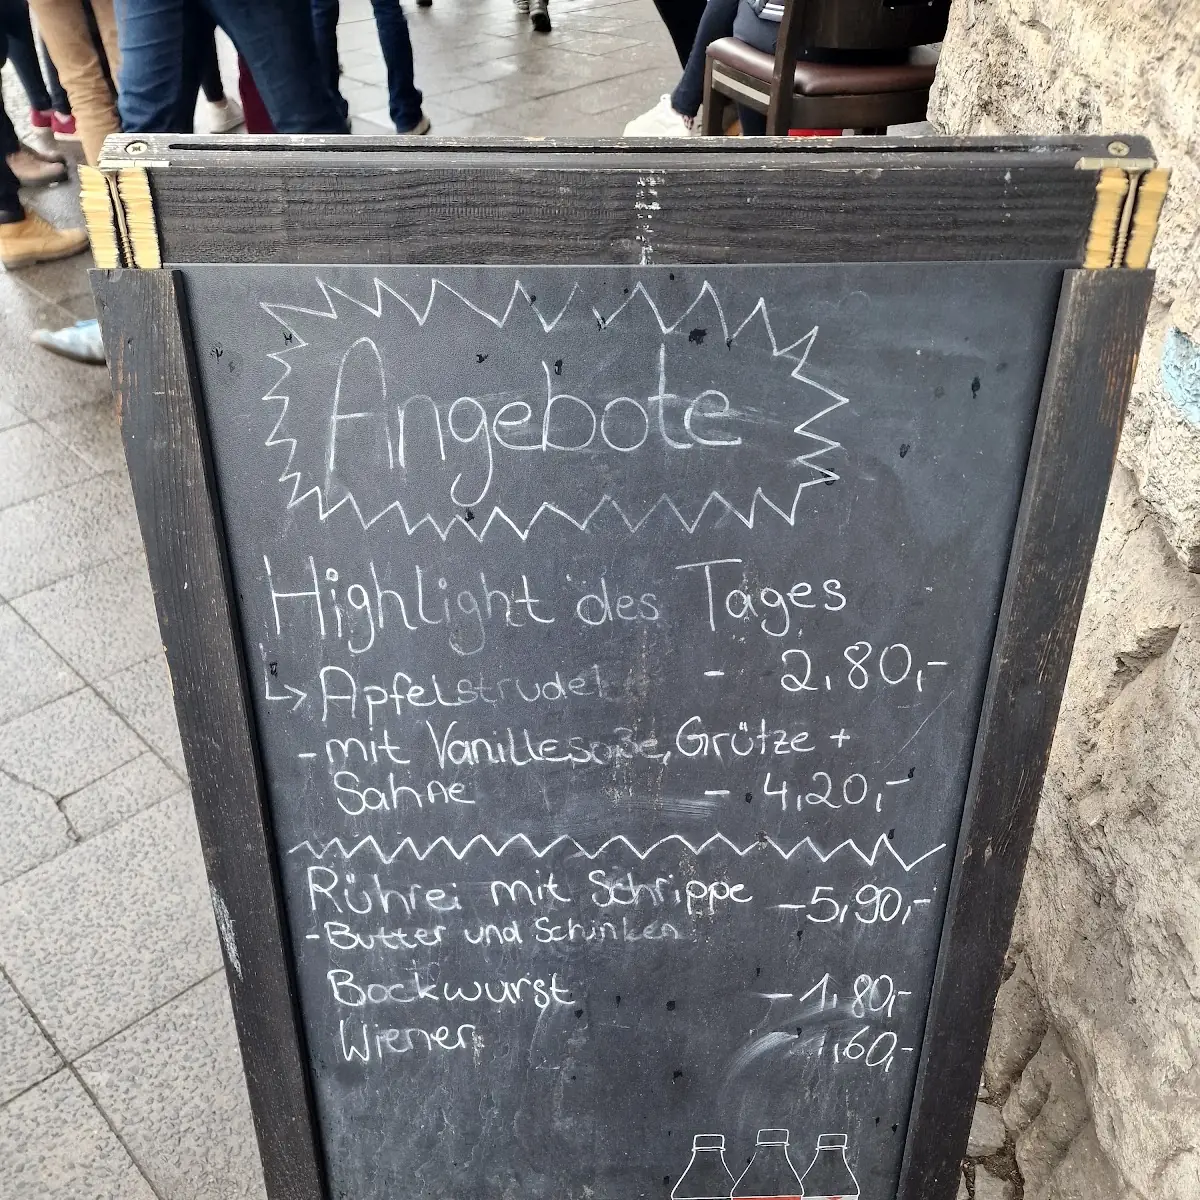 Angebote
Highlight des Tages
↳ Apfelstrudel - 2,80,-
- mit Vanillesoße, Grütze +
Sahne - 4,20,-
Rührei mit Schrippe - 5,90,-
- Butter und Schinken
Bockwurst - 1,80,-
Wiener - 1,60,-